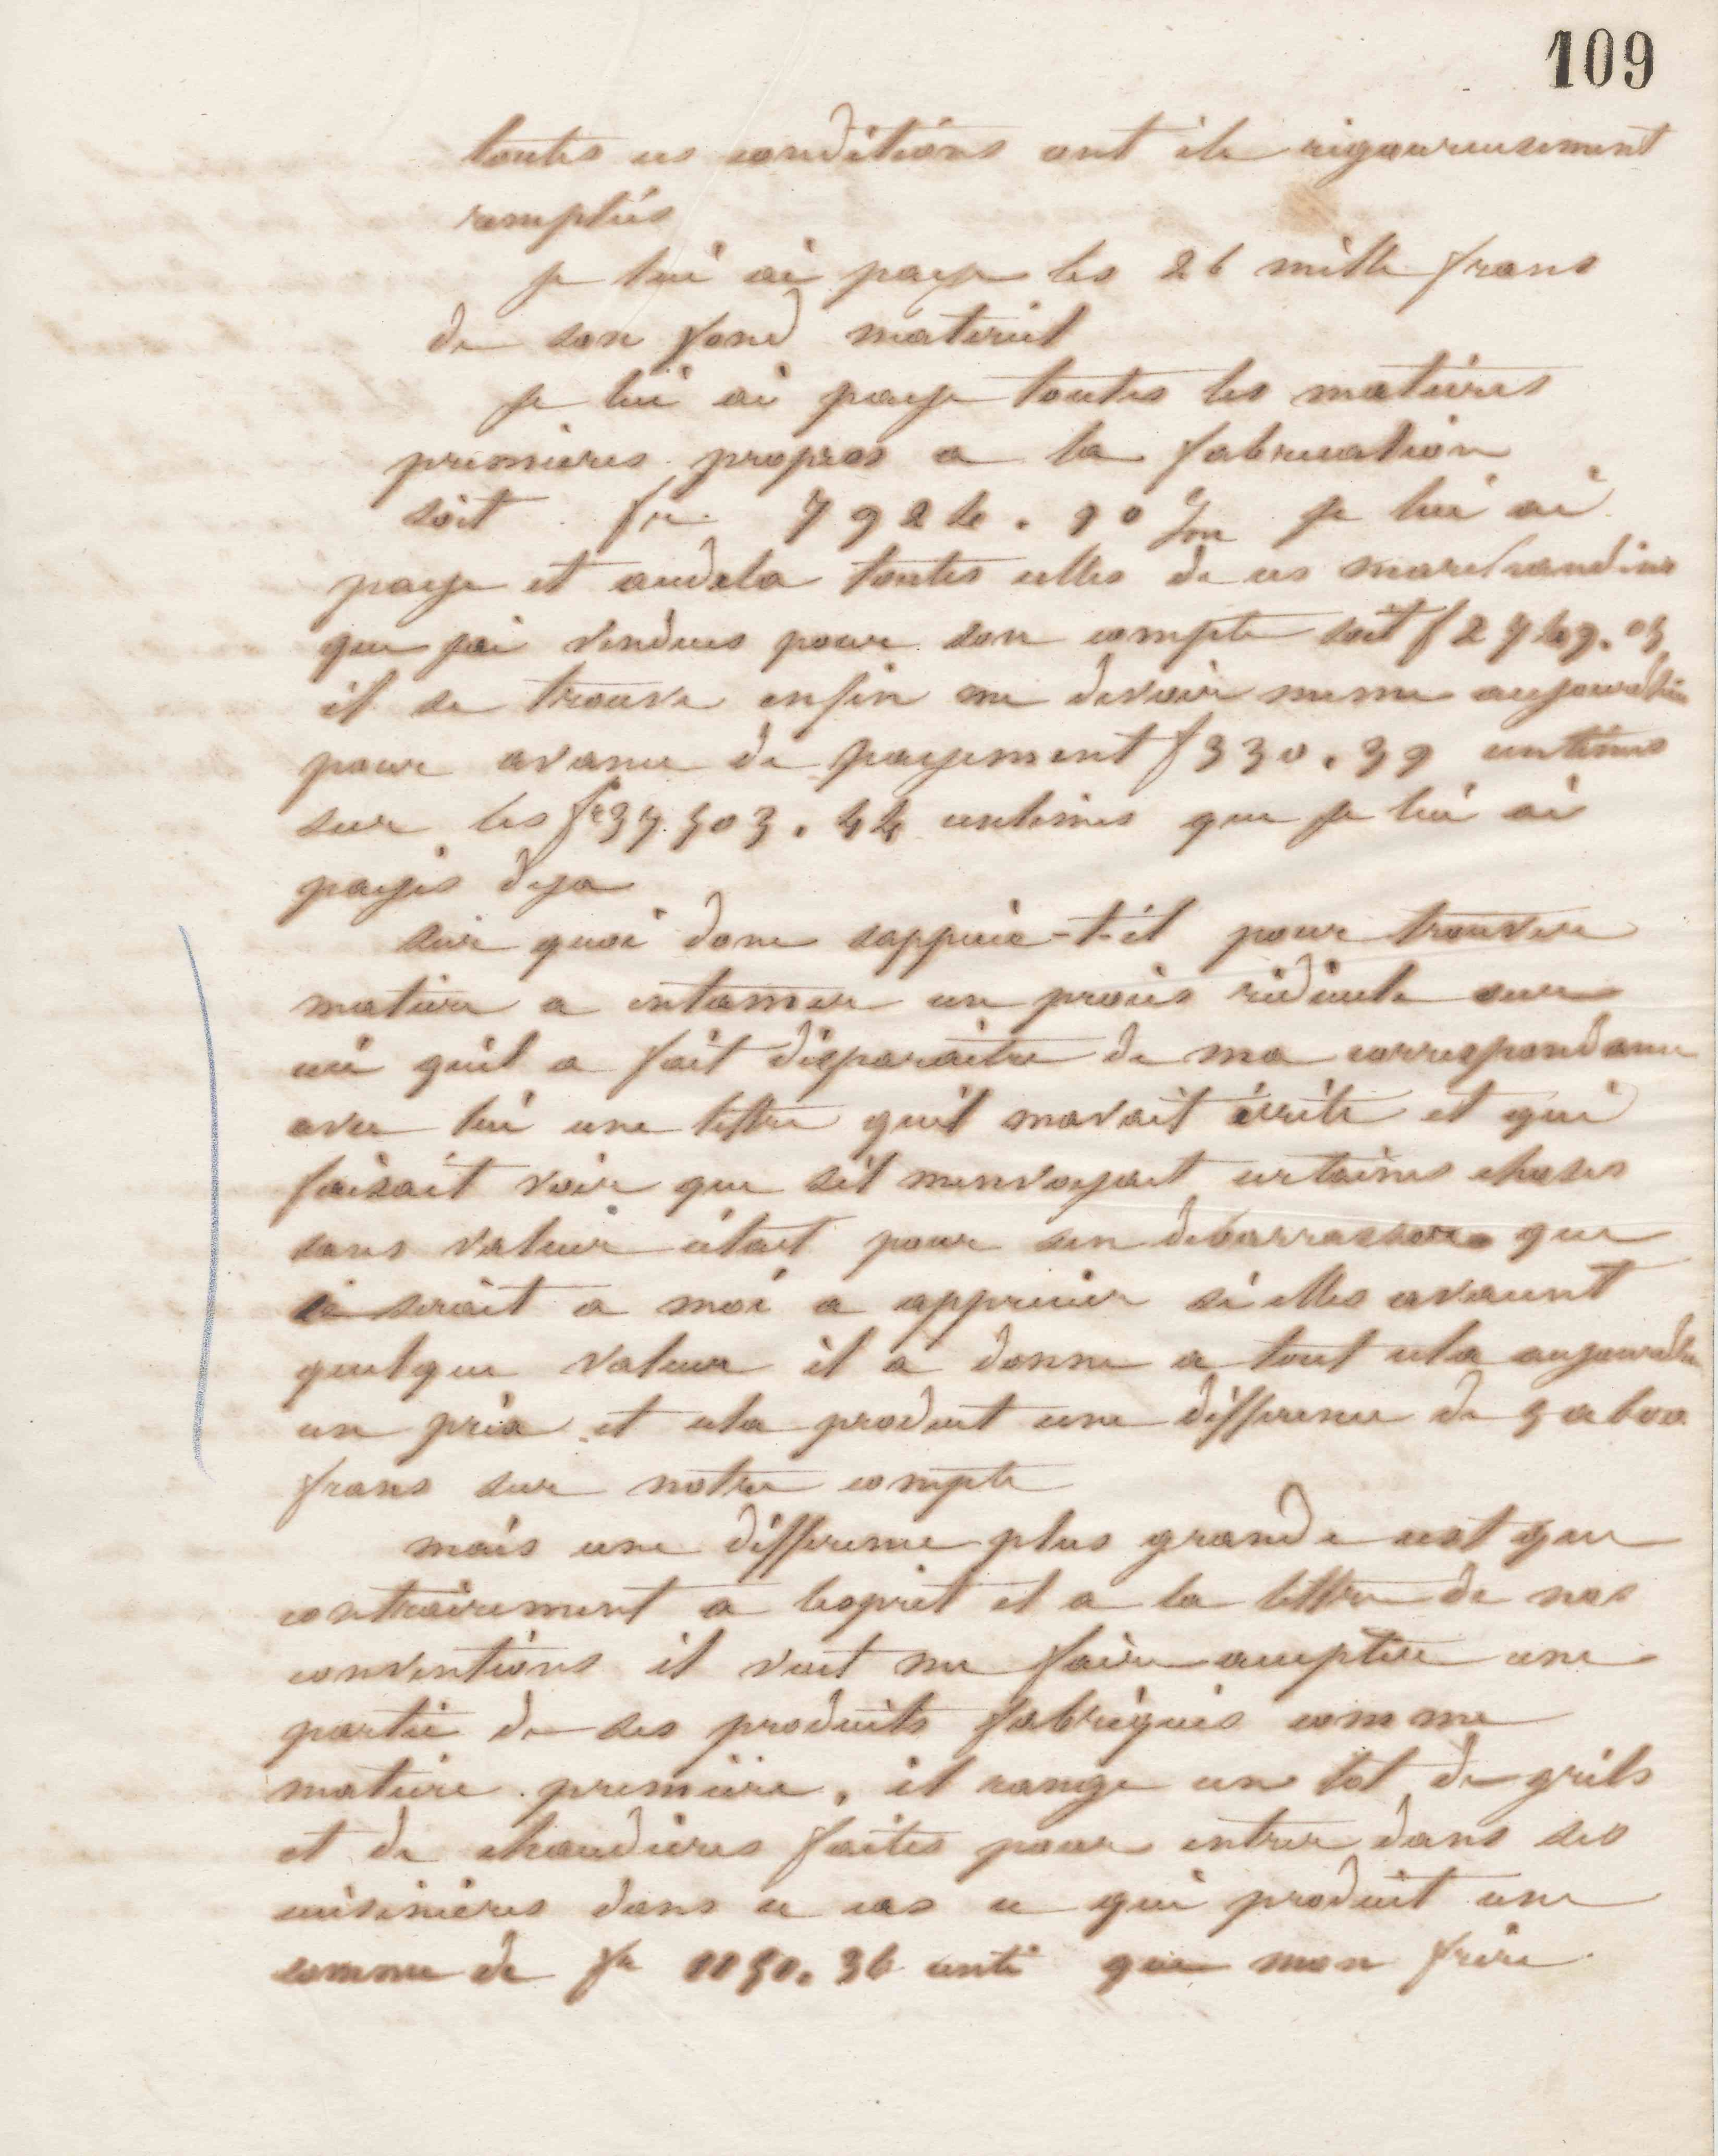 109
toutes ces conditions ont éte rigoureusement
remplies
je lui ai paye les 26 mille frans
de son fond materiel
je lui ai paye toutes les matières
premieres propres a la fabrication
soit fr 7924.90 je lui ai
paye et audela toutes celles de ces marchandises
que jai vendues pour son compte soit f 2749.05
il se trouve enfin me devoir meme aujourdhui
pour avance de payement f 330.39 centimes
sur les fr 37503.44 centimes que je lui ai
payés deja
sur quoi donc sappuie-t-il pour trouver
matiere a entamer un procès ridicule sur
ceci quil a fait disparaitre de ma correspondance
avec lui une lettre quil mavait écrite et qui
faisait voir que sil menvoyait certaines choses
sans valeur cétait pour sen debarrasser que
ce serait a moi a apprecier si elles avaient
quelque valeur il a donne a tout cela aujourdhui
un prix et cela produit une différence de 5 a 600
frans sur notre compte
mais une différence plus grande cest que
contrairement a lesprit et a la lettre de nos
conventions il veut me faire accepter une
partie de ses produits fabriqués comme
matière première, il range un lot de grils
et de chaudieres faites pour entrer dans ses
cuisinieres dans ce cas ce qui produit une
somme de fr 1150.36 centi que mon frère